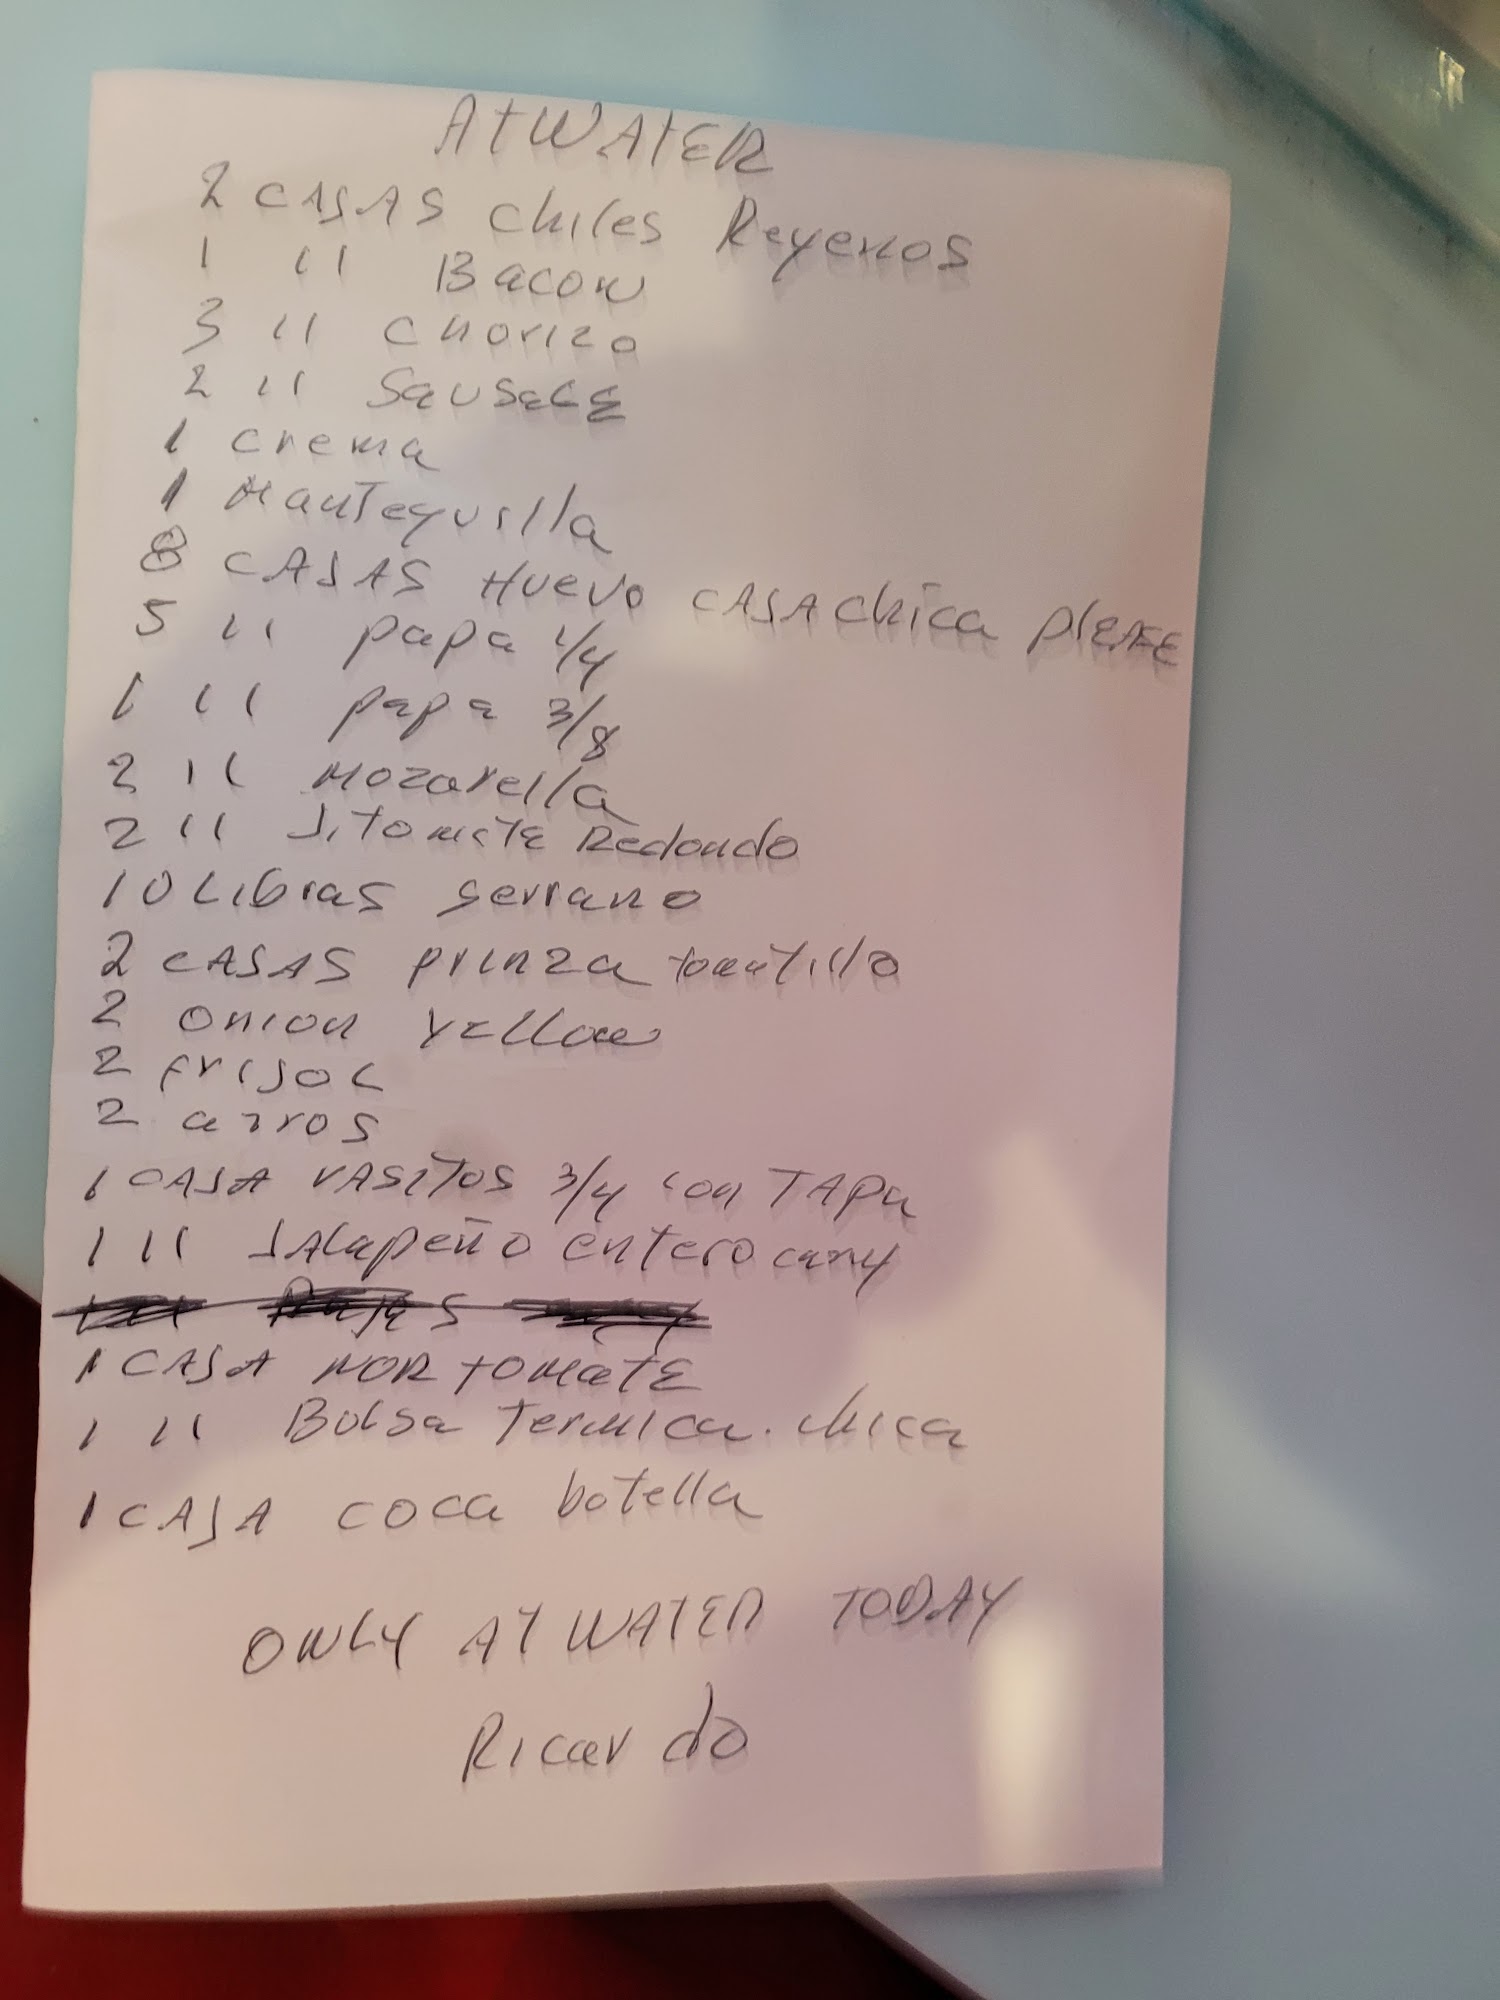 ATWATER
2 CAJAS chiles Reyenos
1 " Bacon
3 " chorizo
2 " Sausage
1 crema
1 Mantequilla
8 CAJAS Huevo CAJA chica plEASE
5 " papa 1/4
1 " papa 3/8
2 " Mozarella
2 " JitomatE Redondo
10 Libras serrano
2 CAJAS prinza tomatillo
2 onion yellow
2 frijol
2 arros
1 CAJA VASITOS 3/4 con TAPa
1 " JALapeño entero
1 CAJA NOR TOMATE
1 " Bolsa Termica. chica
1 CAJA coca botella
ONLY ATWATER TODAY
Ricardo